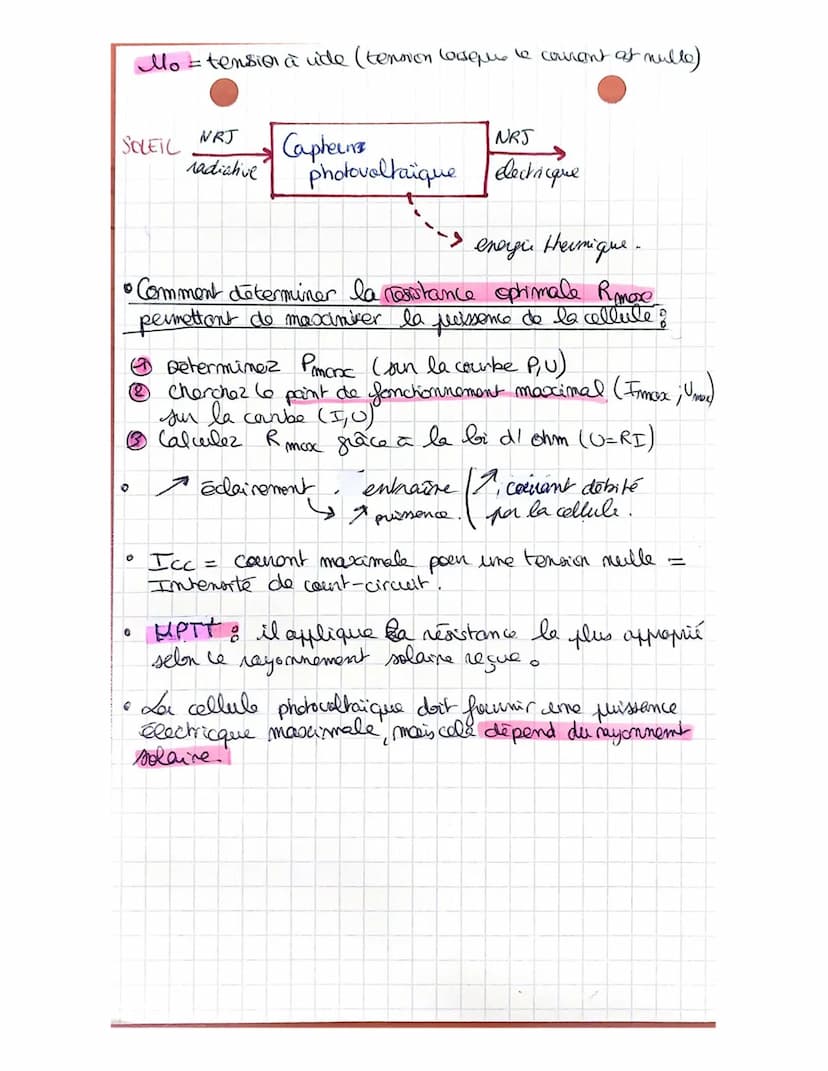 U0 = tension à vide (tension lorsque le courant est nulle)
SOLEIL NRJ radiative
Capteurs photovoltaïque
NRJ électricque
energie thermique.
• Comment déterminer la résistance optimale Rmax
permettant de maximiser la puissance de la cellule :
1 Déterminez Pmax (sur la courbe P,U)
2 cherchez le point de fonctionnement maximal (Imax ; Umax)
sur la courbe (I,U)
3 Calculez Rmax grâce à la loi d'ohm (U=RI)
• ↗ éclairement. entraîne ↗, courant débité
↳ ↗ puissance. par la cellule.
• Icc = courant maximale pour une tension nulle =
Intensité de court-circuit.
• MPTT : il applique la résistance la plus approprié
selon le rayonnement solaire reçue.
• La cellule photovoltaïque doit fournir une puissance
électricque maximale, mais cela dépend du rayonnemt
solaire.